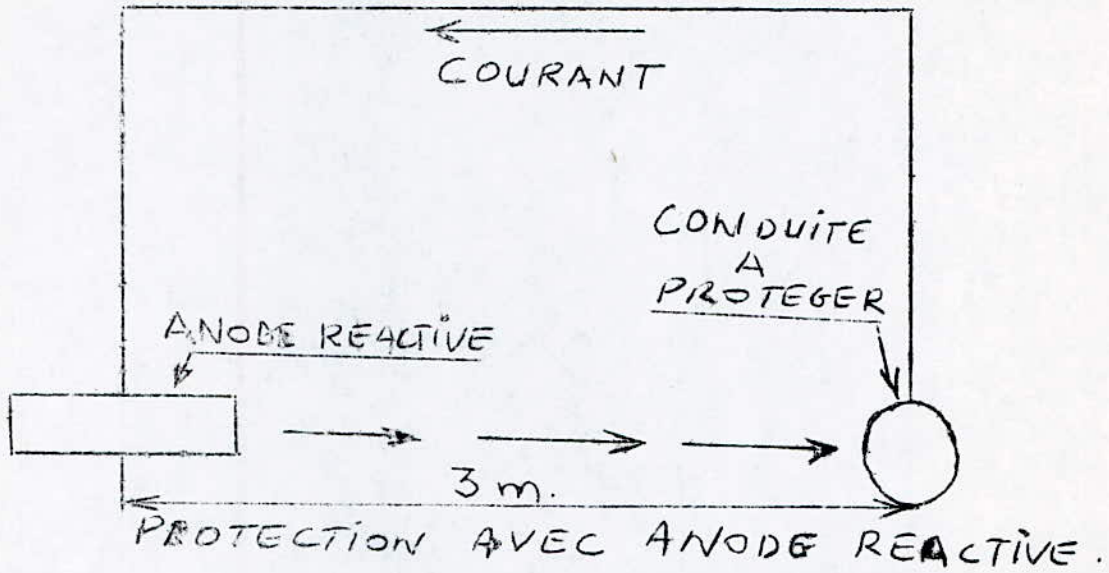 COURANT
CONDUITE
A
PROTEGER
ANODE REACTIVE
3 m.
PROTECTION AVEC ANODE REACTIVE.